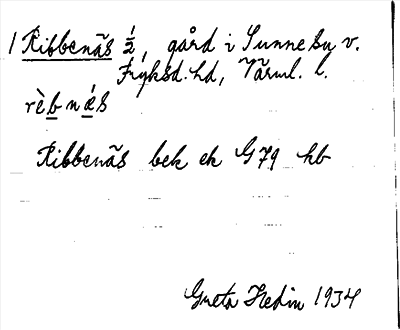 1 Ribbenäs ½, gård i Sunne by v.
Fryksd. hd, Värml. l.
rèbnǽs
Ribbenäs bek ek G79 hb
Greta Hedin 1934